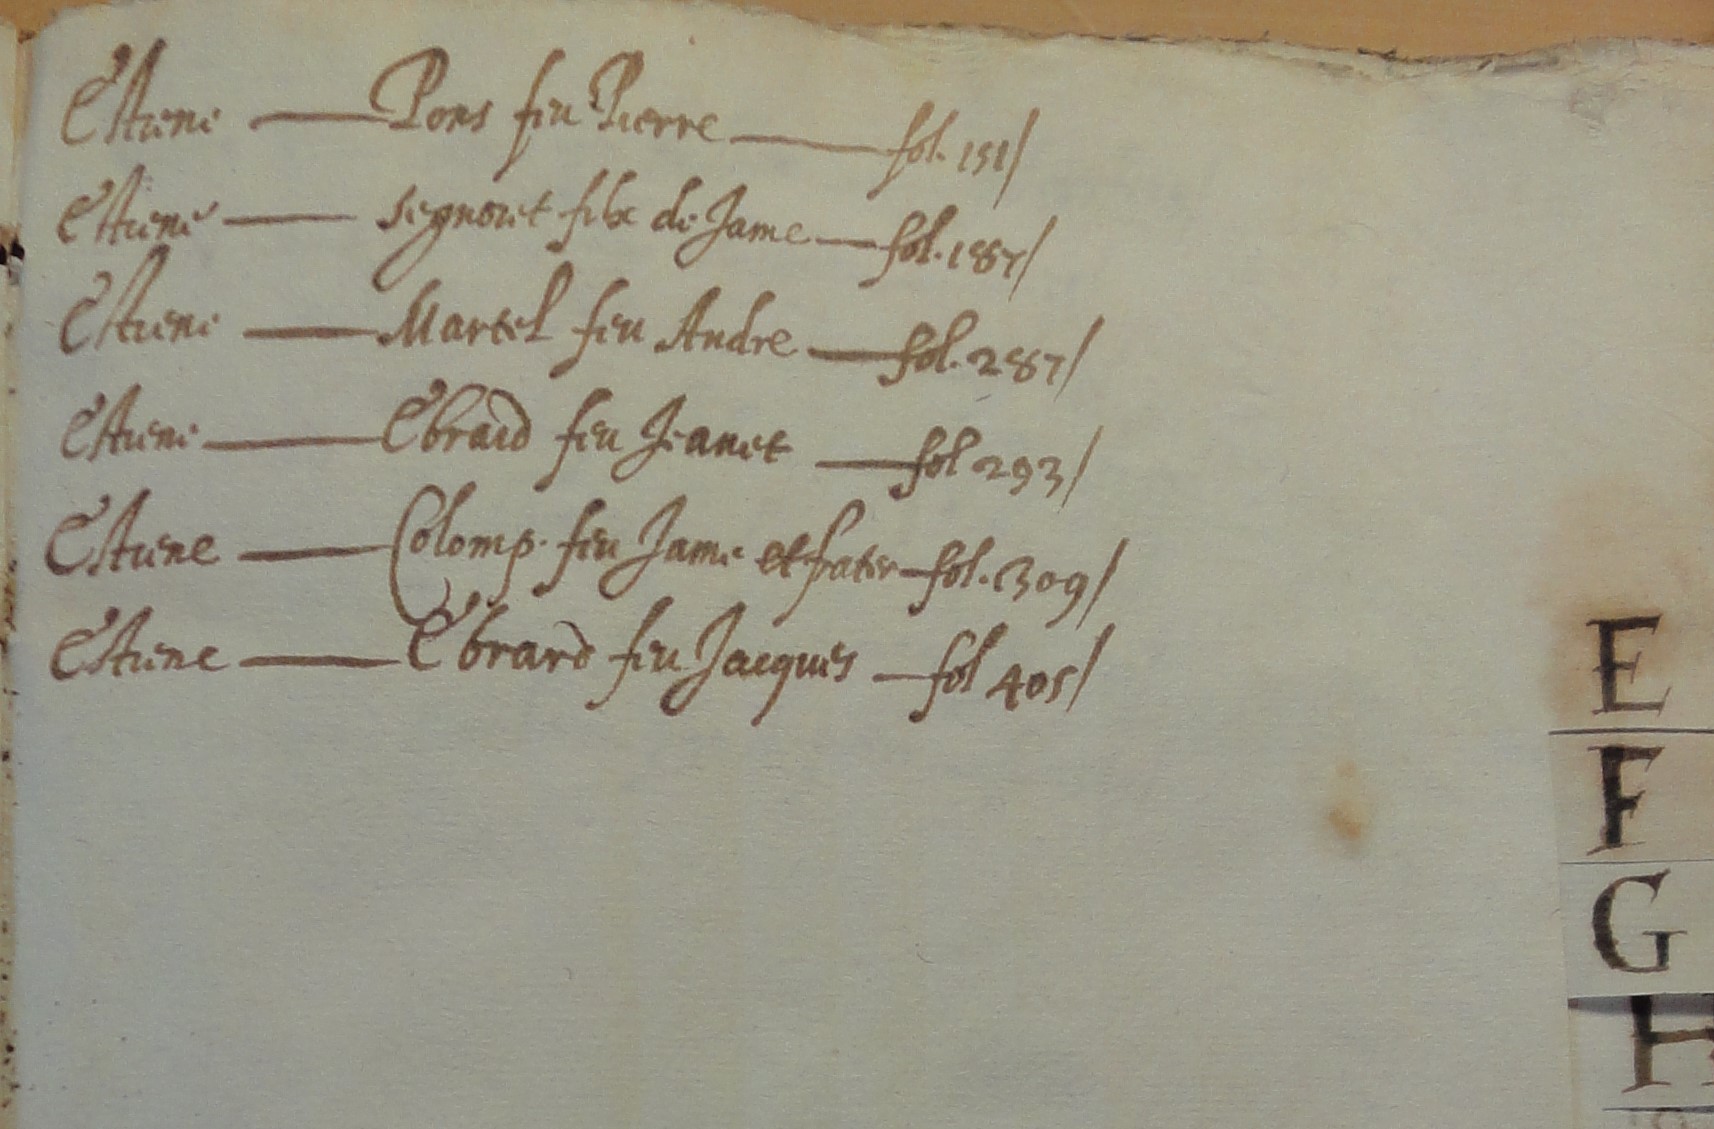 Estiene — Pons feu Pierre — fol. 151/
Estiene — Segnoret filx de Jame — fol. 187/
Estiene — Martel feu Andre — fol. 287/
Estiene — Ebrard feu Jeanet — fol 293/
Estiene — Colomp. feu Jame et frater — fol. 309/
Estiene — Ebrard feu Jacques — fol 405/
E
F
G
H